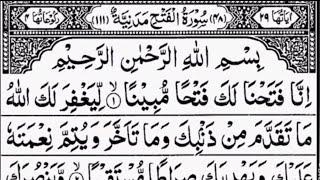 اٰيَاتُهَا ٢٩ (٤٨) سُوْرَةُ الْفَتْحِ مَدَنِيَّةٌ (١١١) رُكُوْعَاتُهَا ٤
بِسْمِ اللّٰهِ الرَّحْمٰنِ الرَّحِيْمِ
اِنَّا فَتَحْنَا لَكَ فَتْحًا مُّبِيْنًا ۝١ لِّيَغْفِرَ لَكَ اللّٰهُ
مَا تَقَدَّمَ مِنْ ذَنْۢبِكَ وَمَا تَاَخَّرَ وَيُتِمَّ نِعْمَتَهٗ
عَلَيْكَ وَيَهْدِيَكَ صِرَاطًا مُّسْتَقِيْمًا ۝٢ وَّيَنْصُرَكَ